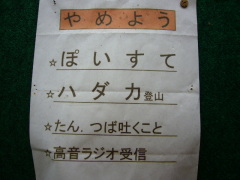 やめよう
☆ぽいすて
☆ハダカ登山
☆たん.つば吐くこと
☆高音ラジオ受信